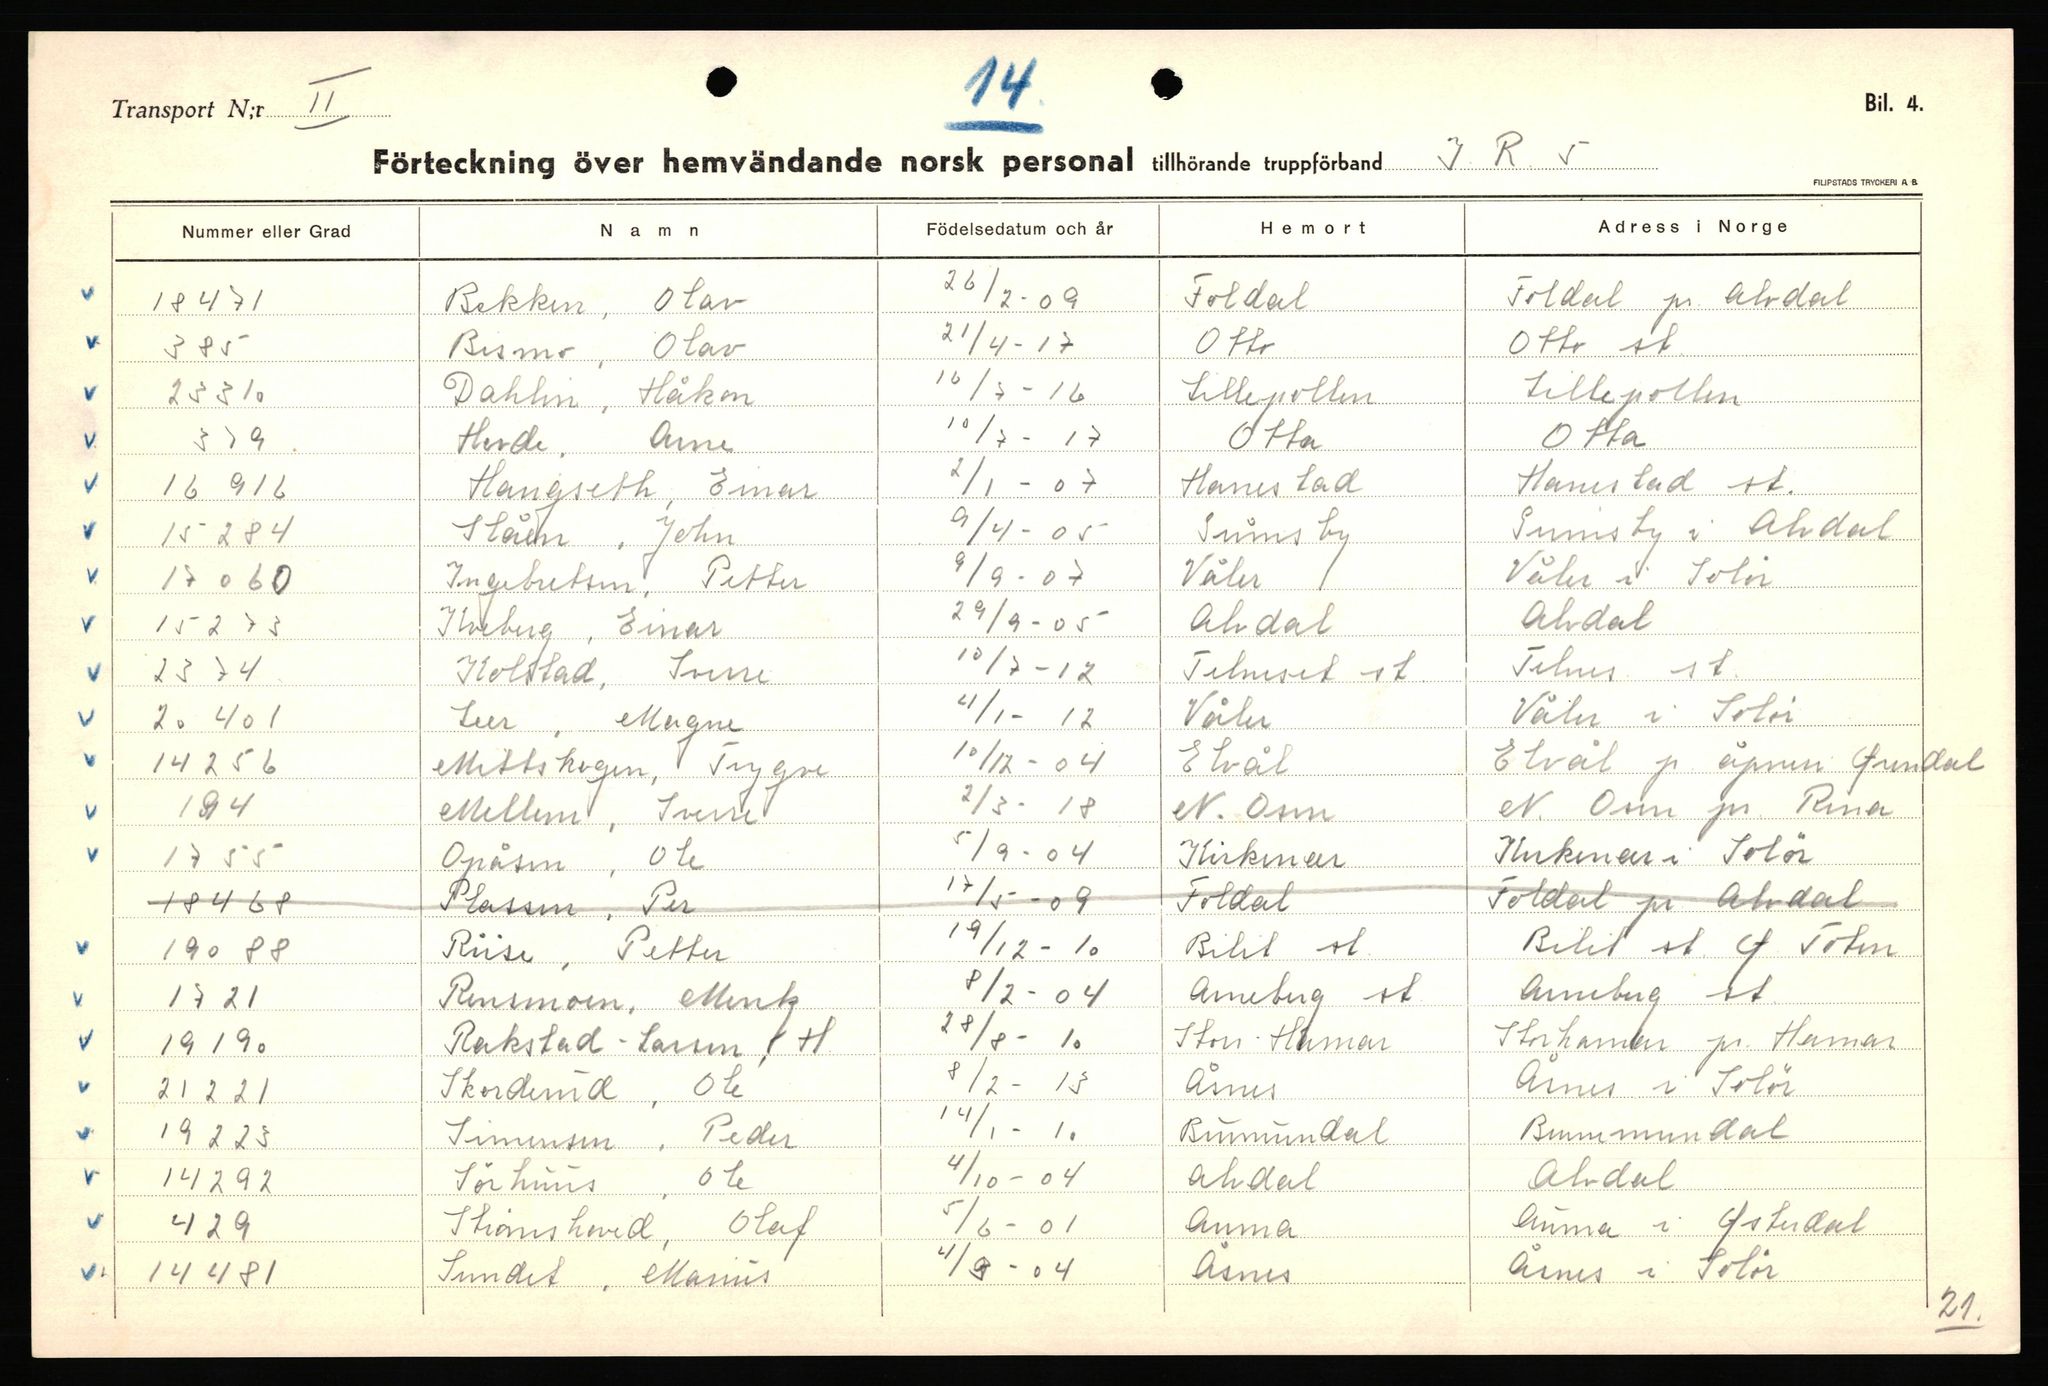 14.
Transport N;r II
Bil. 4.
Förteckning över hemvändande norsk personal tillhörande truppförband J. R. 5
FILIPSTADS TRYCKERI A. B.
Nummer eller Grad Namn Födelsedatum och år Hemort Adress i Norge
v 18471 Bekken, Olav 26/2-09 Foldal Foldal pr. Alvdal
v 385 Bismo, Olav 21/4-17 Otto Otto st.
v 23310 Dahlin, Håkon 16/7-16 Lillepollen Lillepollen
v 379 Hovde, Arne 10/7-17 Otta Otta
v 16916 Haugseth, Einar 2/1-07 Hanestad Hanestad st.
v 15284 Slåen, John 9/4-05 i Alvdal
v 17060 Ingebretsen, Petter 9/9-07 Våler Våler i Solör
v 15273 Kveberg, Einar 29/9-05 Alvdal Alvdal
v 2374 Kolstad, Sverre 10/7-12 Telneset st. Telnes st.
v 20401 Leer, Magne 4/1-12 Våler Våler i Solör
v 14256 Mittskogen, Trygve 10/12-04 Elvål Elvål p
v 194 Mellem, Sverre 2/3-18 N. Osen N. Osen pr. Rena
v 1755 Opåsen, Ole 5/9-04 Kirkenær Kirkenær i Solör
18468 Plassen, Per 17/5-09 Foldal Foldal pr Alvdal
v 19088 Riise, Petter 19/12-10 Bilit st. Bilit st. Ø Toten
v 1721 Rensmoen, Mentz 8/2-04 Arneberg st Arneberg st.
v 19190 Rakstad-Larsen, H. 28/8-10 Stor-Hamar Storhamar pr. Hamar
v 21221 Skorderud, Ole 8/2-13 Åsnes Åsnes i Solör
v 19223 Simensen, Peder 14/1-10 Bumundal Bummundal
v 14292 Sörhuus, Ole 4/10-04 Alvdal Alvdal
v 429 Strömshoved, Olaf 5/6-01 Auma Auma i Østerdal
v. 14481 Sundet, Marius 4/9-04 Åsnes Åsnes i Solör
21.